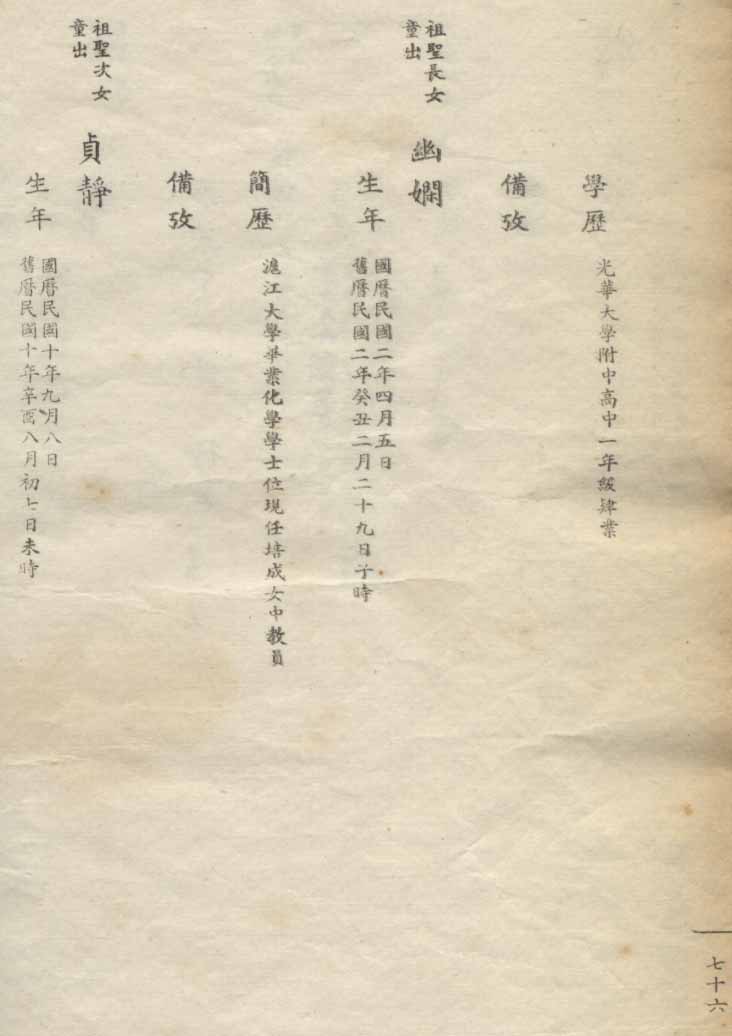 學歷
光華大學附中高中一年級肄業
備攷
祖聖長女
童出
幽嫻
生年
國曆民國二年四月五日
舊曆民國二年癸丑二月二十九日子時
簡歷
滬江大學畢業化學學士位現任培成女中教員
備攷
祖聖次女
童出
貞靜
生年
國曆民國十年九月八日
舊曆民國十年辛酉八月初七日未時
七十六